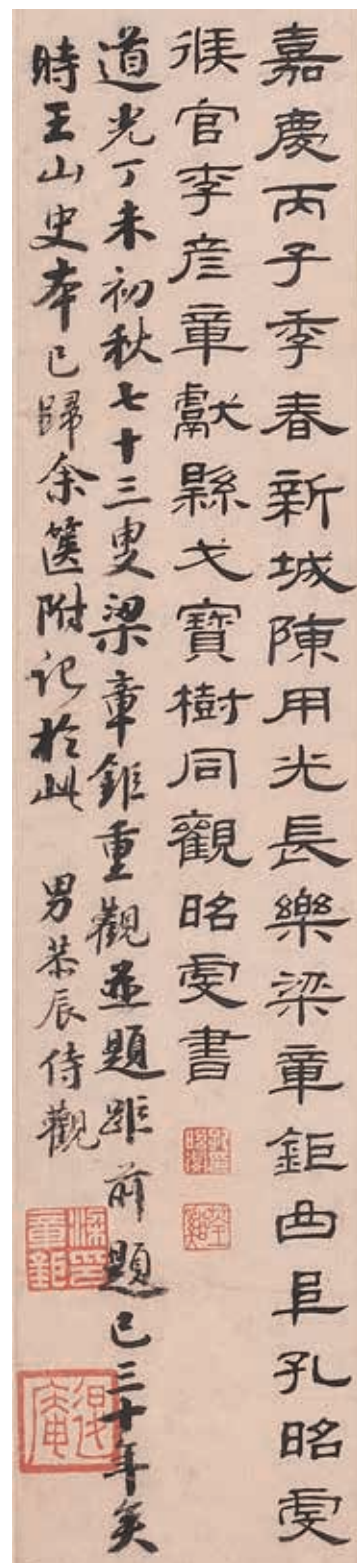 嘉慶丙子季春新城陳用光長樂梁章鉅曲阜孔昭虔
候官李彥章獻縣戈寶樹同觀昭虔書
道光丁未初秋七十三叟梁章鉅重觀並題距前題已三十年矣
時王山史本已歸余篋附記於此 男恭辰侍觀